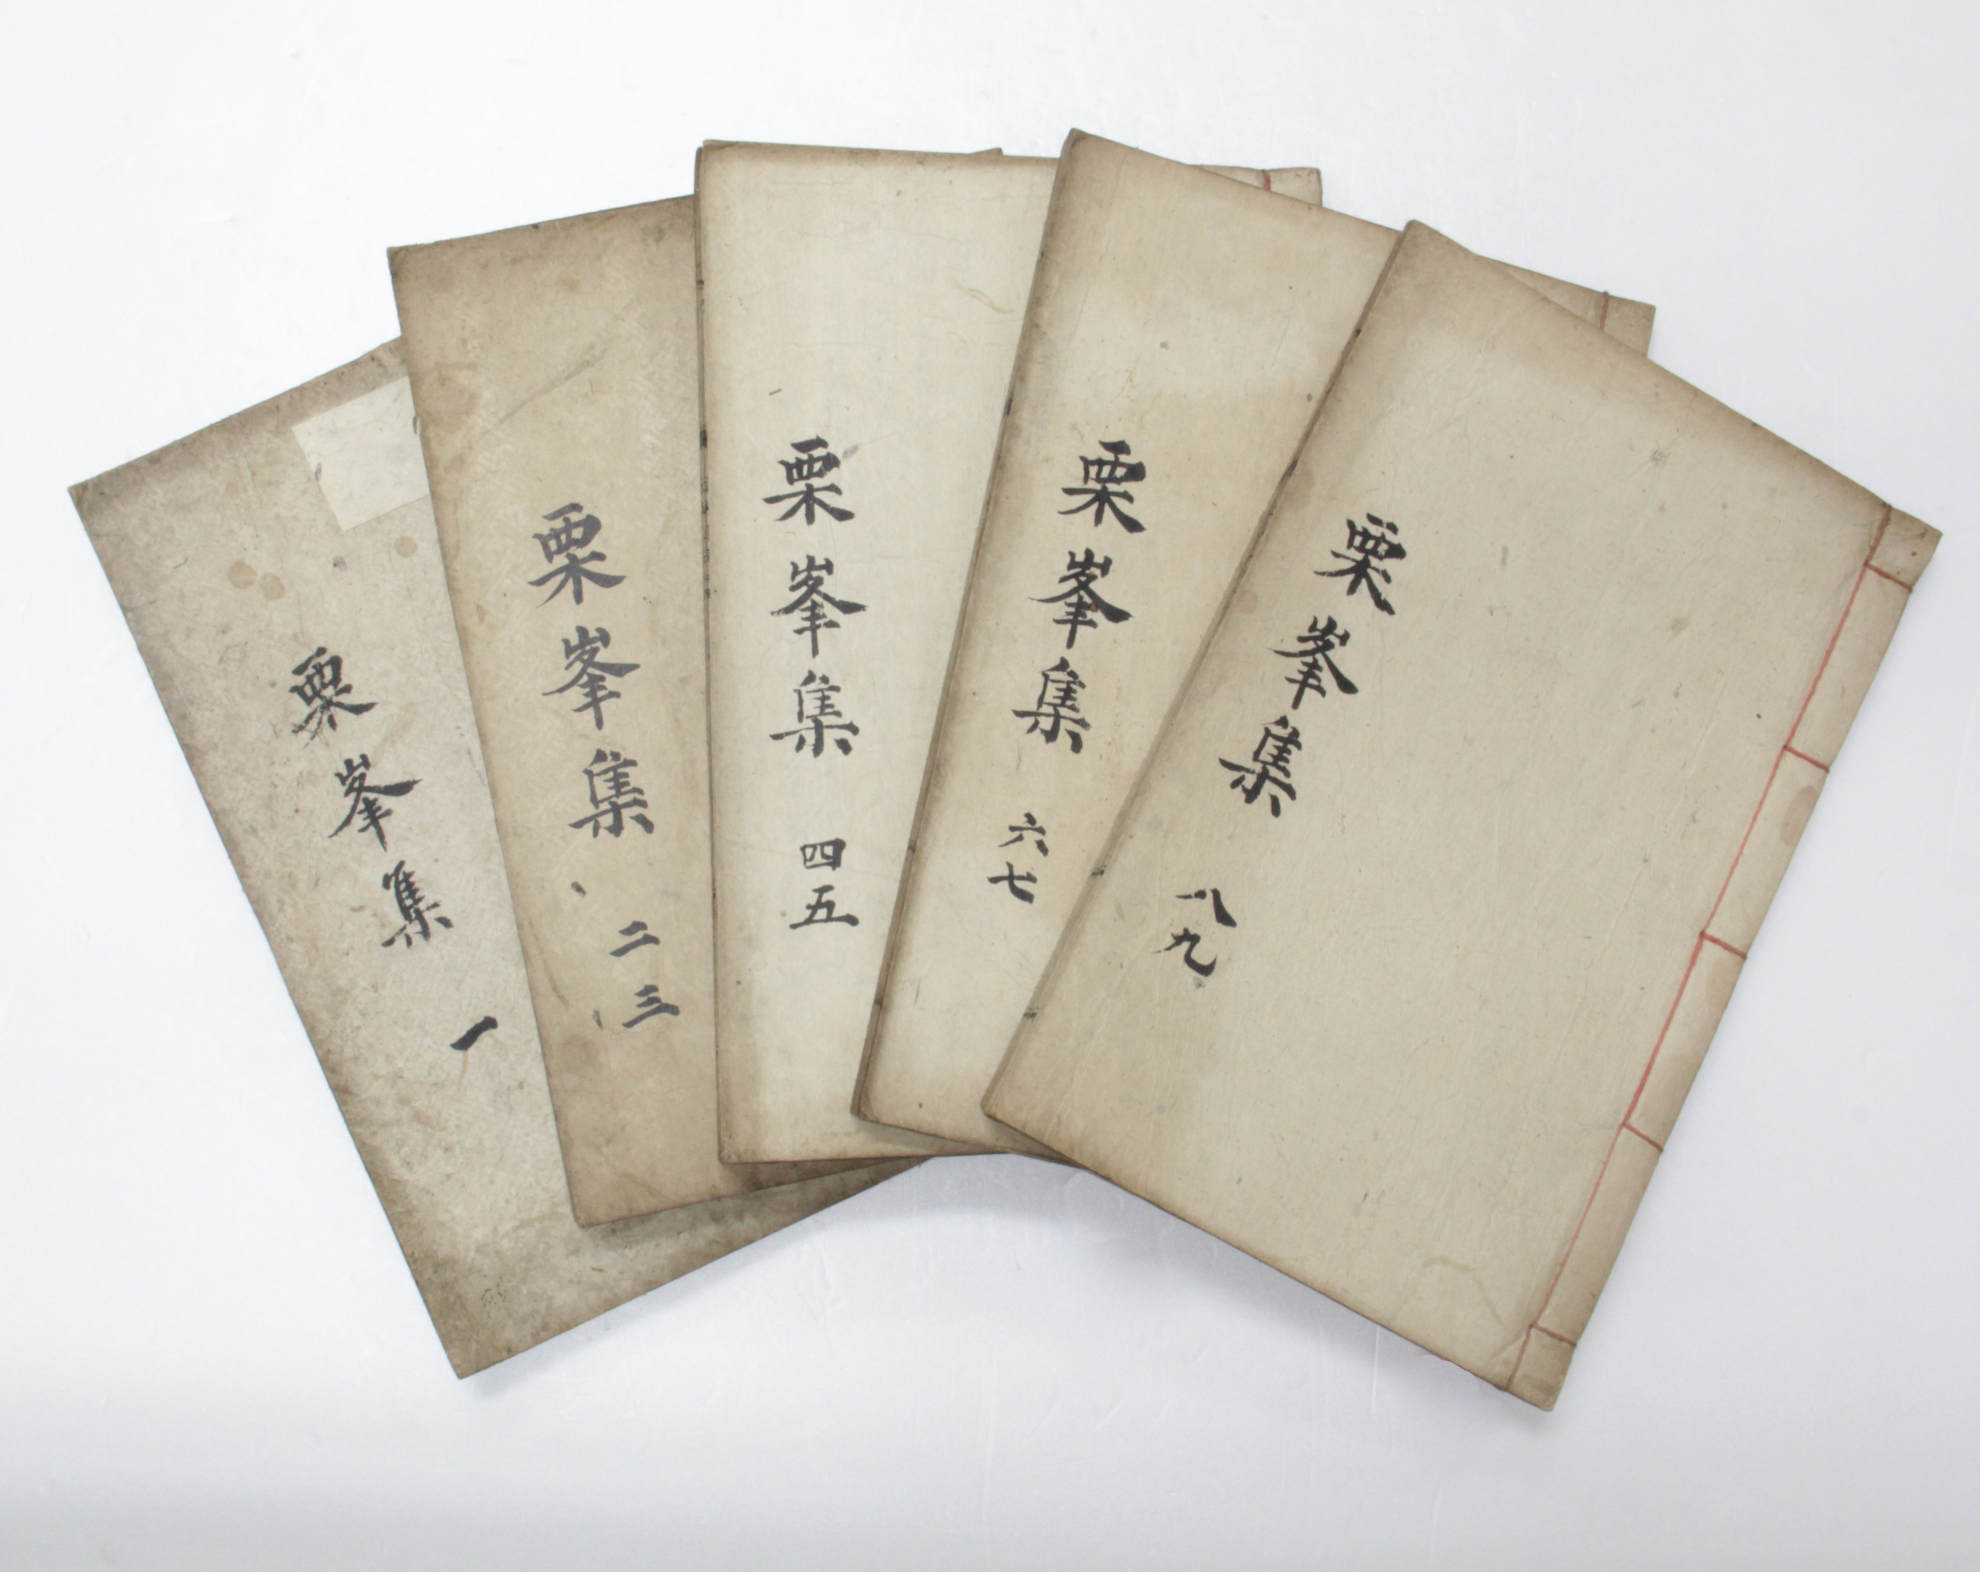 栗峯集 一
栗峯集 二三
栗峯集 四五
栗峯集 六七
栗峯集 八九